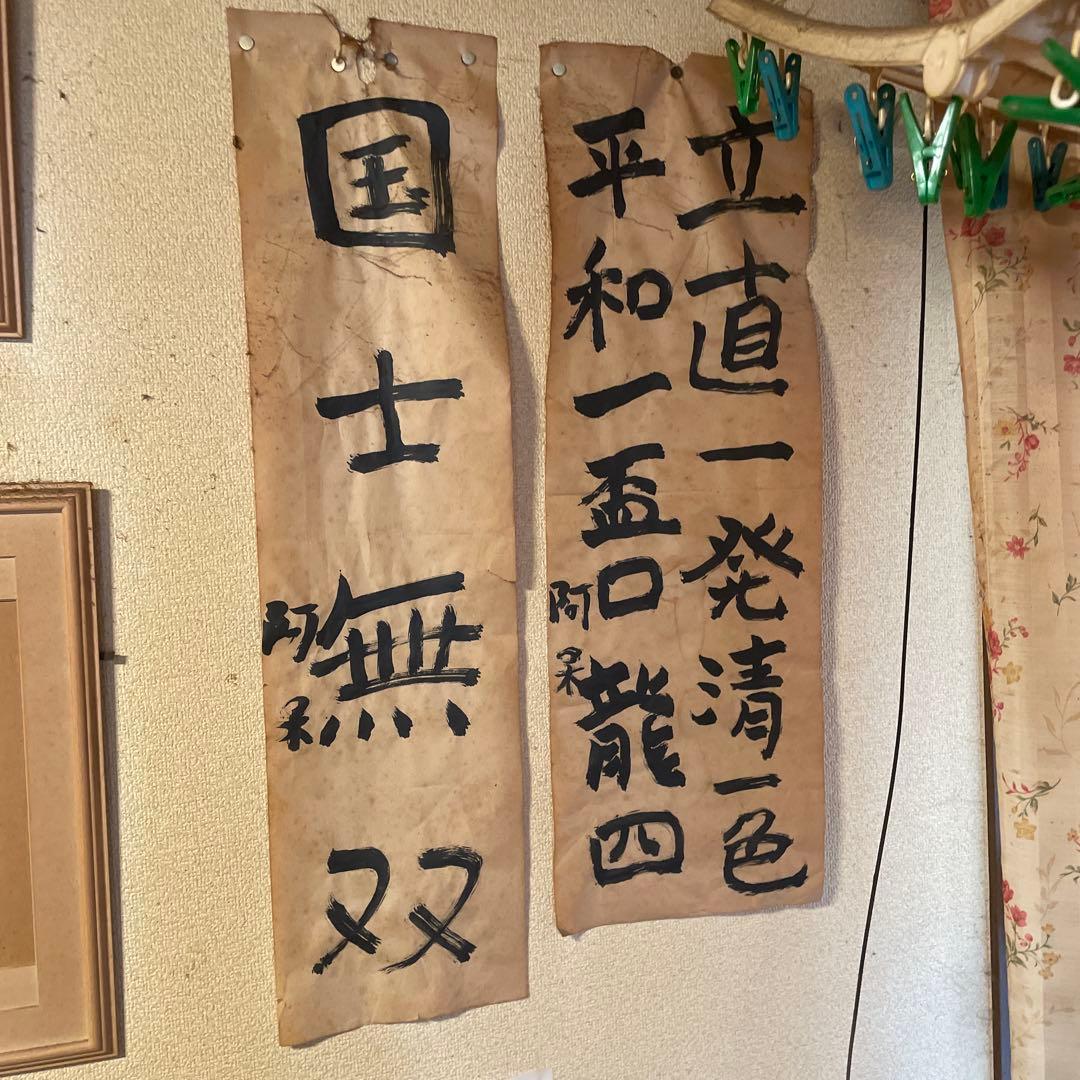 立直一発清一色
平和一盃口龍四
阿呆
国士無双
阿呆